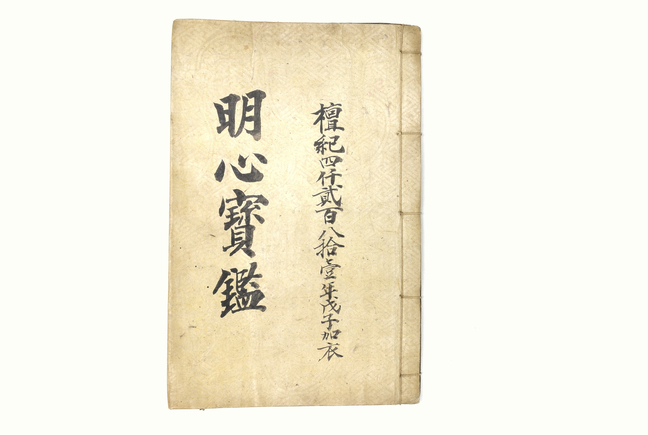 檀紀四仟貳百八拾壹年戊子加衣
明心寶鑑